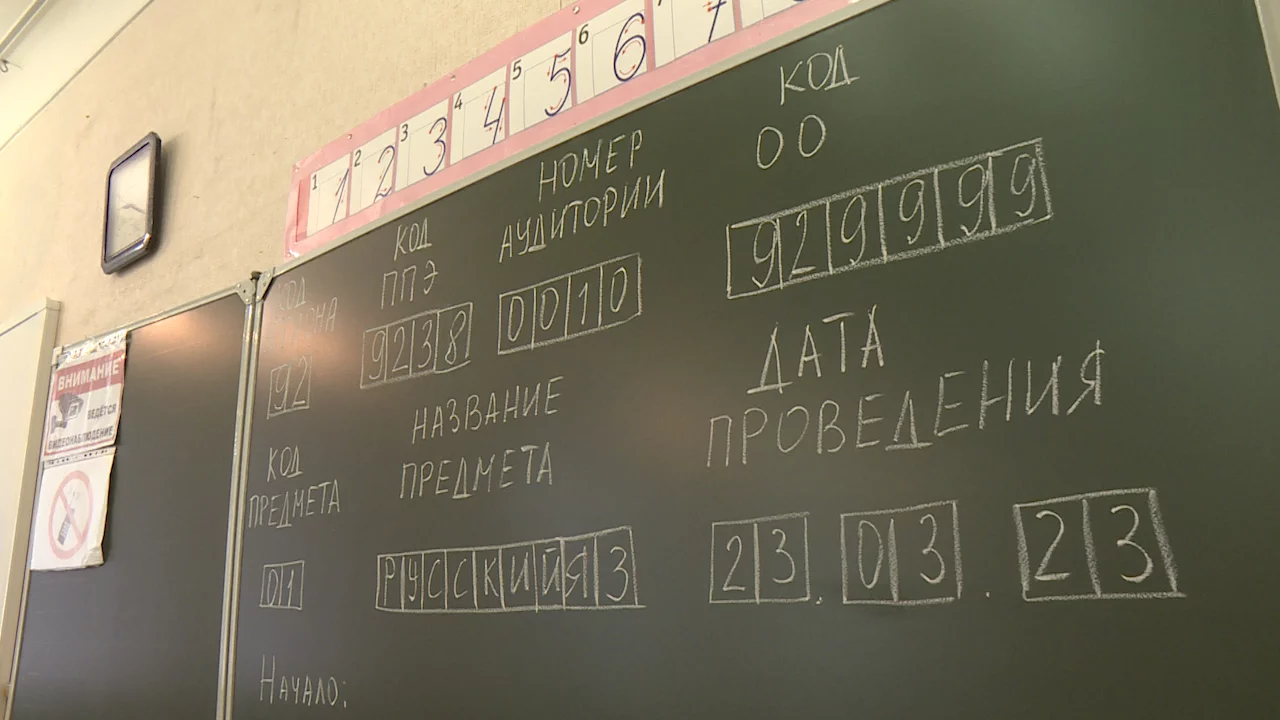 1 2 3 4 5 6 7
1 2 3 4 5 6 7
КОД
РЕГИОНА
92
КОД
ППЭ
9238
НОМЕР
АУДИТОРИИ
0010
КОД
ОО
929999
КОД
ПРЕДМЕТА
01
НАЗВАНИЕ
ПРЕДМЕТА
РУССКИЙЯЗ
ДАТА
ПРОВЕДЕНИЯ
23.03.23
Начало:
ВНИМАНИЕ
ВЕДЁТСЯ
ВИДЕОНАБЛЮДЕНИЕ